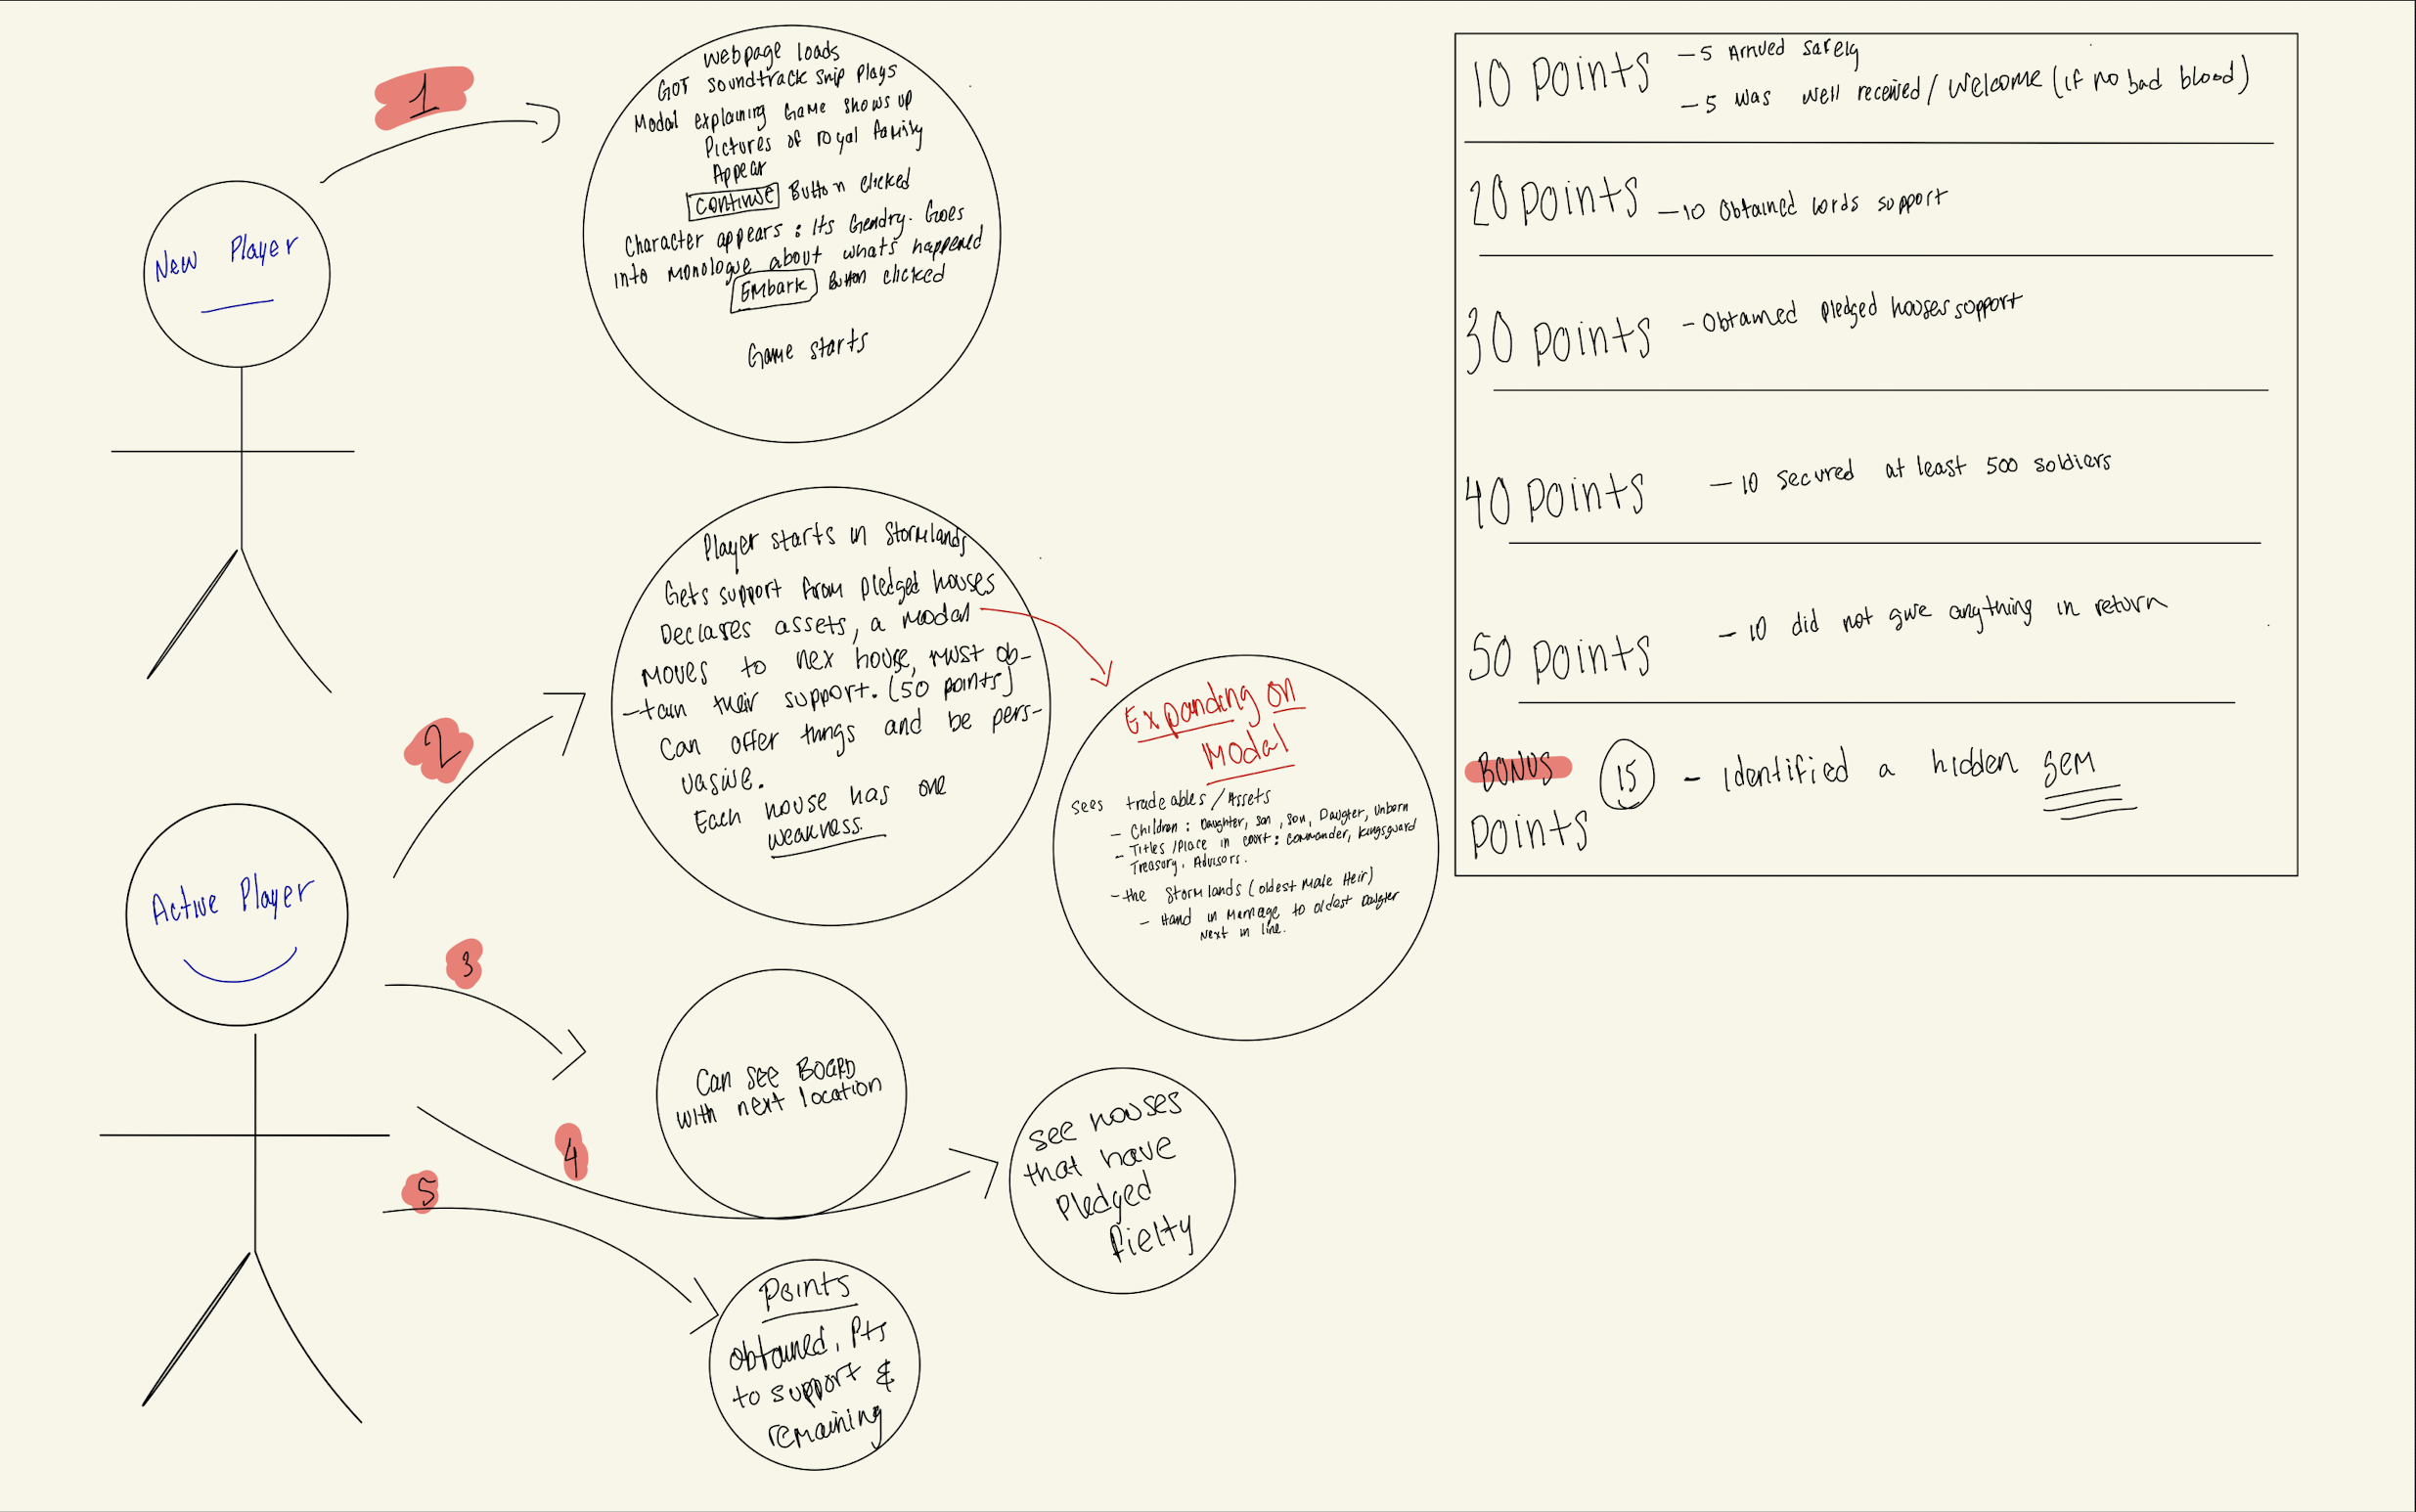 1
New Player
Webpage loads
GOT soundtrack snip plays
Modal explaining Game shows up
Pictures of royal family
Appear
Continue Button clicked
Character appears : Its Gendry. Goes
into monologue about what's happened
Embark Button clicked
Game starts
2
Active Player
Player starts in Stormlands
Gets support from pledged houses
Declares assets, a modal
moves to nex house, must ob-
-tain their support. (50 points)
Can offer things and be pers-
vasive.
Each house has one
weakness.
Expanding on
Modal
Sees tradeables / Assets
- Children : Daughter, son, son, Daugter, Unborn
- Titles / Place in court : Commander, Kingsguard
Treasury, Advisors.
- the Stormlands (oldest Male Heir)
- Hand in Marriage to oldest Daugter
Next in line.
3
Can see BOARD
with next location
4
see houses
that have
Pledged
fielty
5
Points
obtained, Pts
to support &
remaining
10 points
- 5 Arrived safely
- 5 was well received / Welcome (if no bad blood)
20 points - 10 Obtained lords support
30 points - Obtained pledged houses support
40 points - 10 secured at least 500 soldiers
50 points - 10 did not give anything in return
BONUS 15 - identified a hidden gem
points